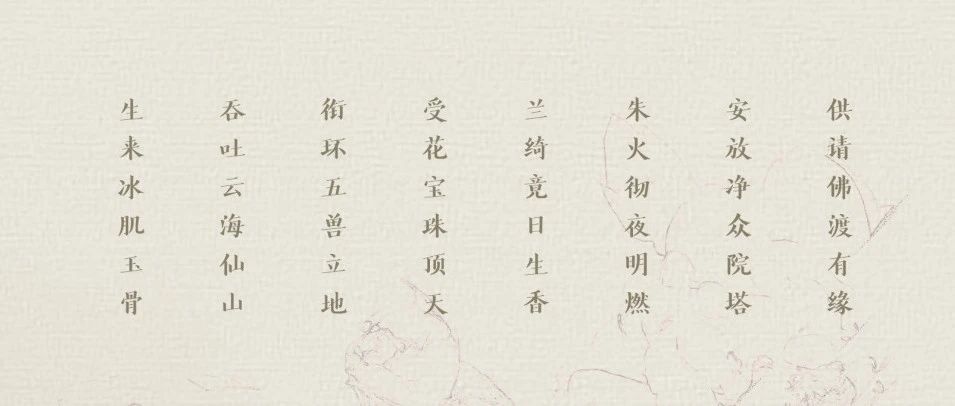 生来冰肌玉骨
吞吐云海仙山
衔环五兽立地
受花宝珠顶天
兰绮竟日生香
朱火彻夜明燃
安放净众院塔
供请佛渡有缘